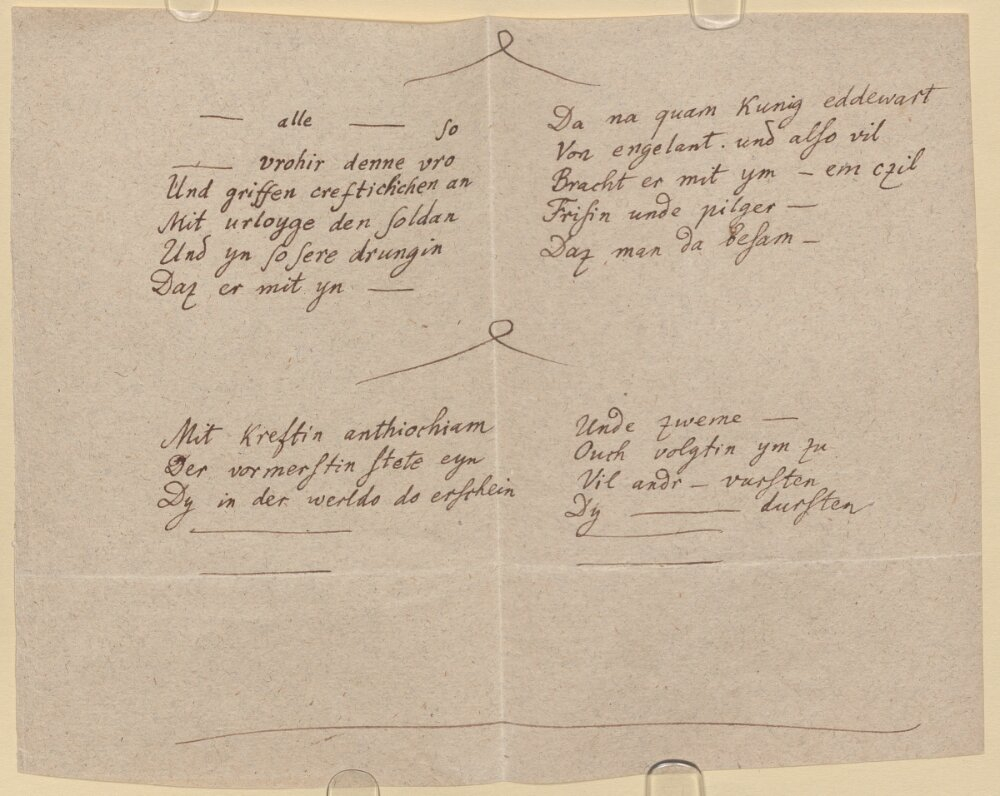 — alle — so
— vrohir denne vro
Und griffen creftichichen an
Mit urloyge den soldan
Und yn so sere drungin
Daz er mit yn —
Da na quam Kunig eddewart
Von engelant. und also vil
Bracht er mit ym – em czil
Frisin unde pilger —
Daz man da besam –
Mit Kreftin anthiochiam
Der vormerstin stete eyn
Dy in der werldo do erschein
Unde zweme —
Ouch volgtin ym zu
Vil andr – vursten
Dy — dursten